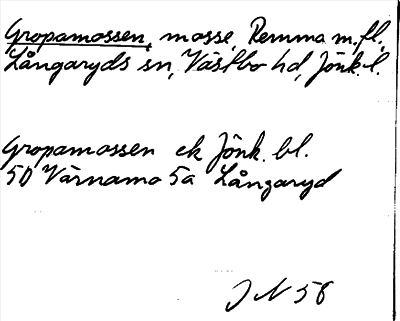 Gropamossen, mosse, Remma m.fl.,
Långaryds sn, Västbo hd, Jönk. l.
Gropamossen ek Jönk. bl.
5D Värnamo 5a Långaryd
J N 58